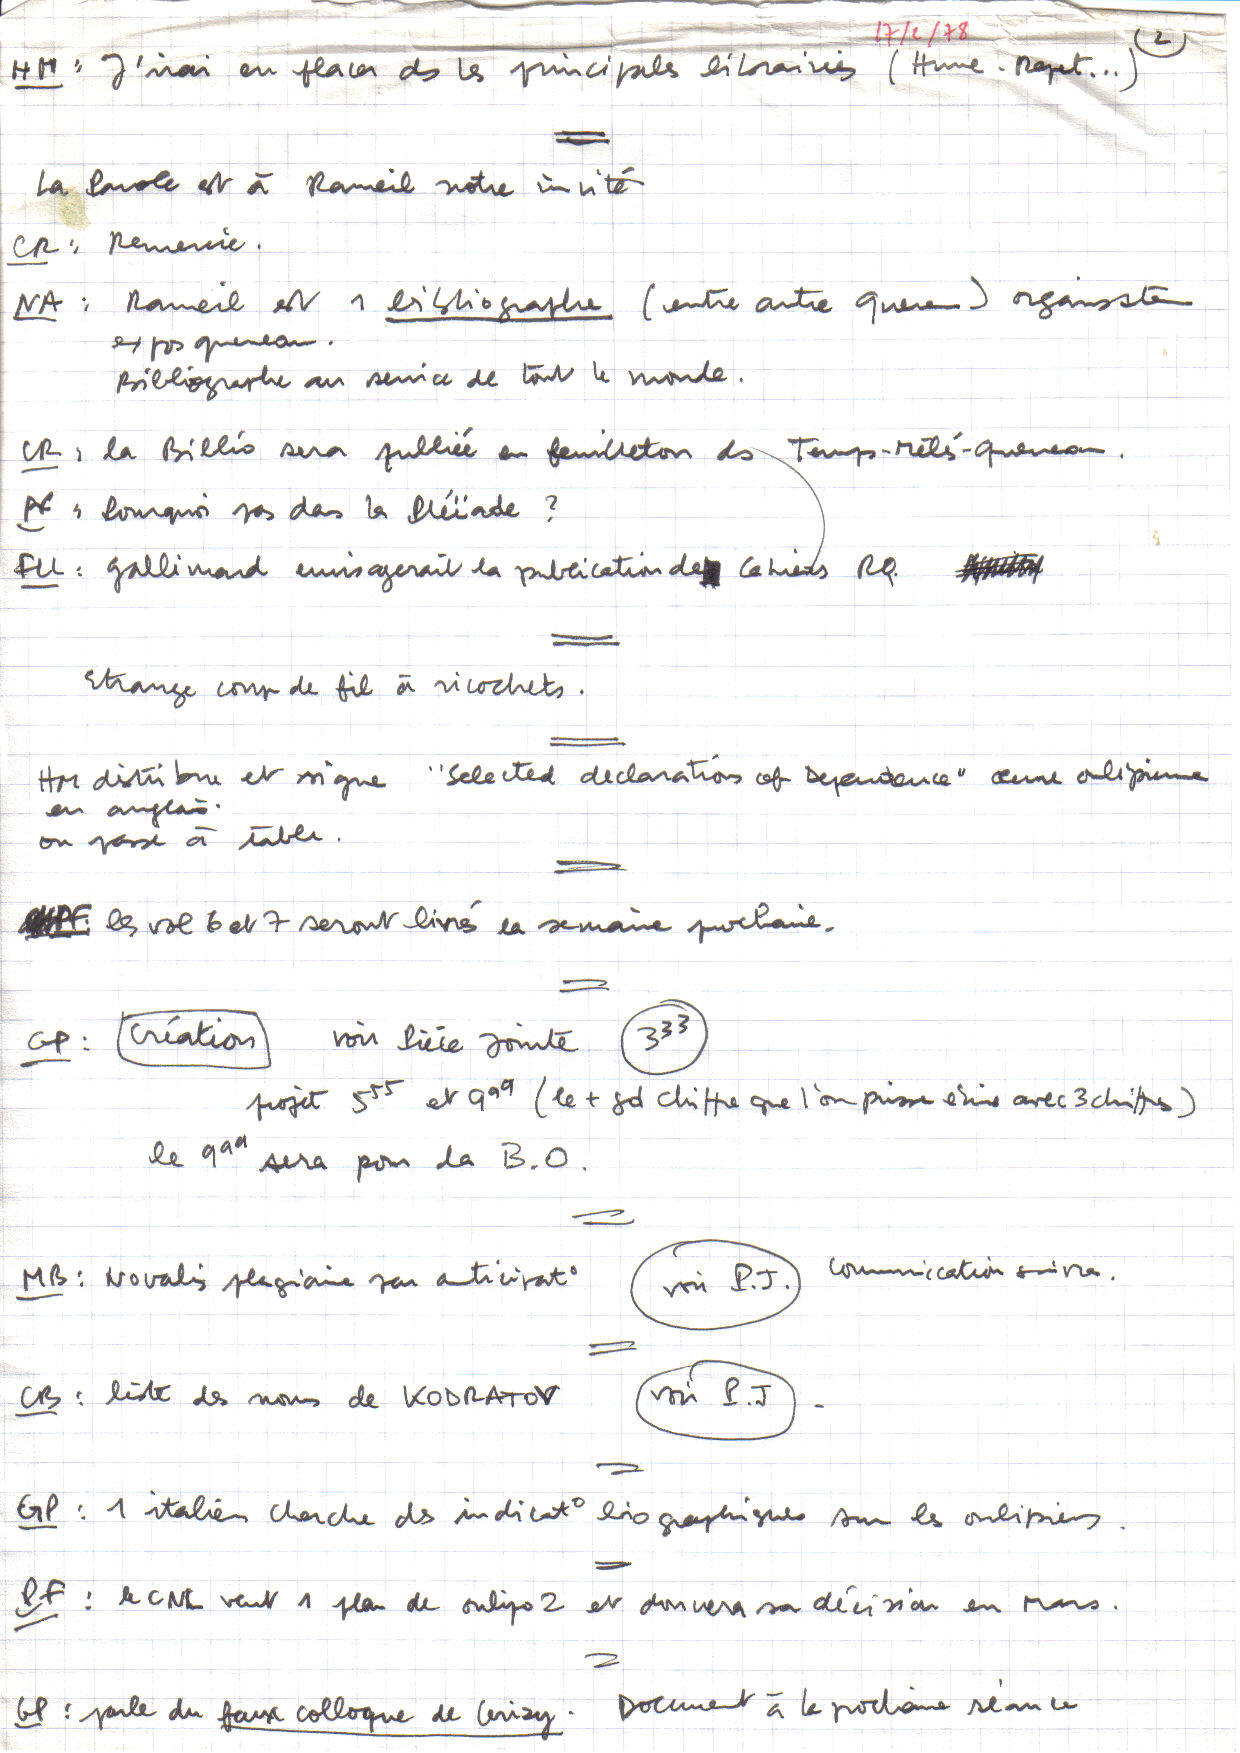 17/2/78
(2)
HM : J'irai en placer ds les principales librairies (Hune - Maget...)
La Parole est à Rameil notre invité
CR : Remercie.
NA : Rameil est 1 bibliographe (entre autre Queneau) organisateur
expos queneau.
Bibliographe au service de tout le monde.
CR : la Biblio sera publiée en feuilleton ds Temps-Mêlés-Queneau.
PF : Pourquoi pas dans la Pléïade ?
FLL : Gallimard envisagerait la publication de Cahiers RQ.
Etrange coup de fil à ricochets.
HM distribue et signe "Selected declarations of Dependence" œuvre oulipienne
en anglais.
on passe à table.
PF : les vol 6 et 7 seront livrés la semaine prochaine.
GP : Création voir Pièce Jointe 3³³
projet 5⁵⁵ et 9⁹⁹ (le + gd chiffre que l'on puisse écrire avec 3 chiffres)
le 9⁹⁹ sera pour la B.O.
MB : Novalis plagiaire par anticipat° voir P.J. Communication suivra.
CB : liste des noms de KODRATOV voir P.J.
GP : 1 italien cherche des indicat° biographiques sur les oulipiens.
PF : le CNL veut 1 plan de oulipo 2 et donnera sa décision en Mars.
GP : parle du faux colloque de Cerisy. Document à la prochaine séance